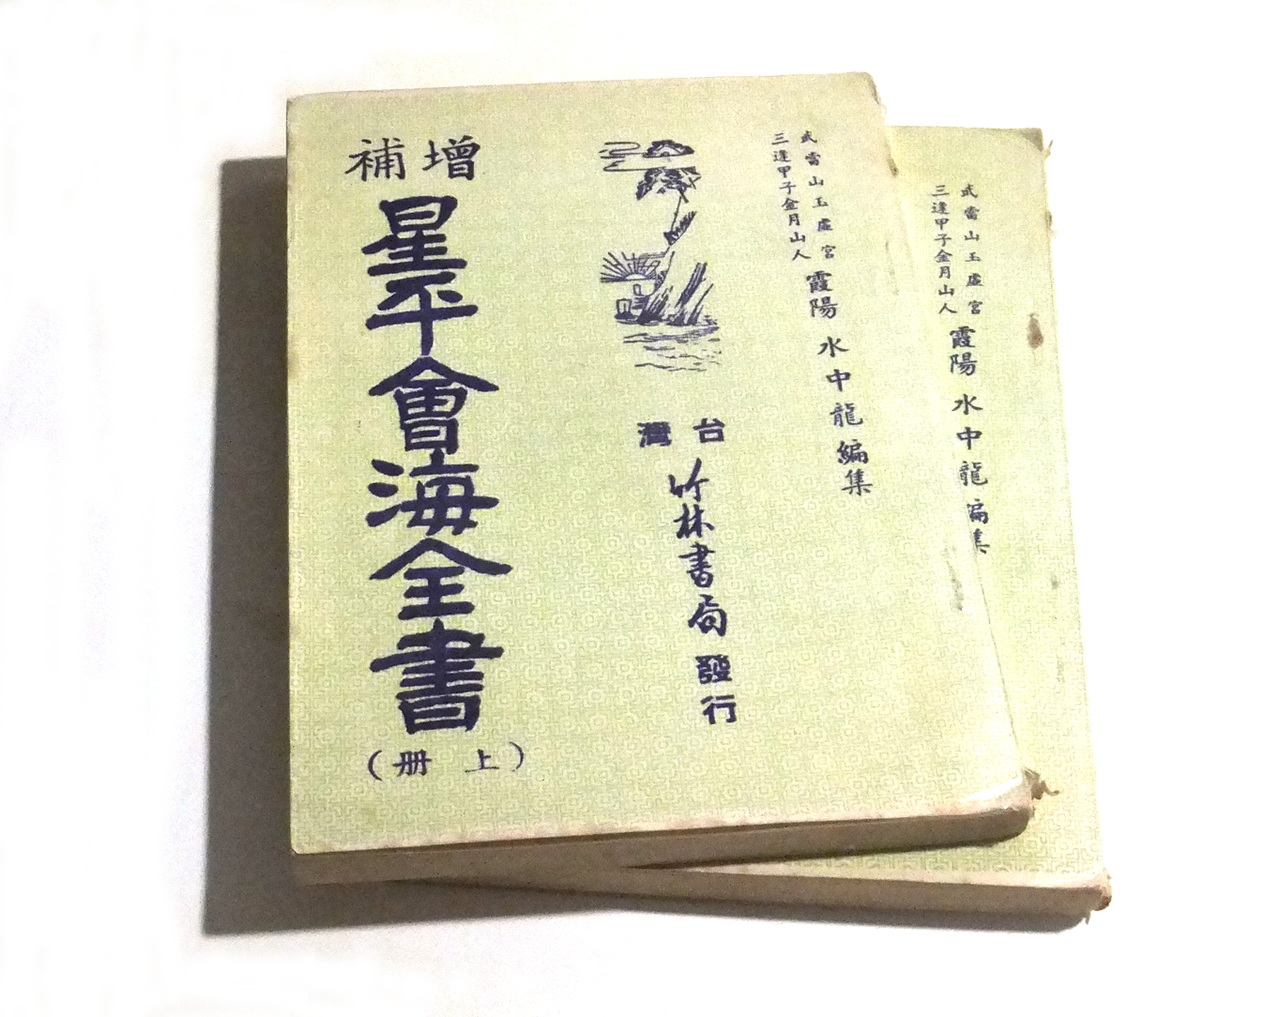 武當山玉虛宮
三逢甲子金月山人
霞陽 水中龍編集
台灣
竹林書局
發行
增補
星平會海全書
（上册）
武當山玉虛宮
三逢甲子金月山人
霞陽 水中龍編集